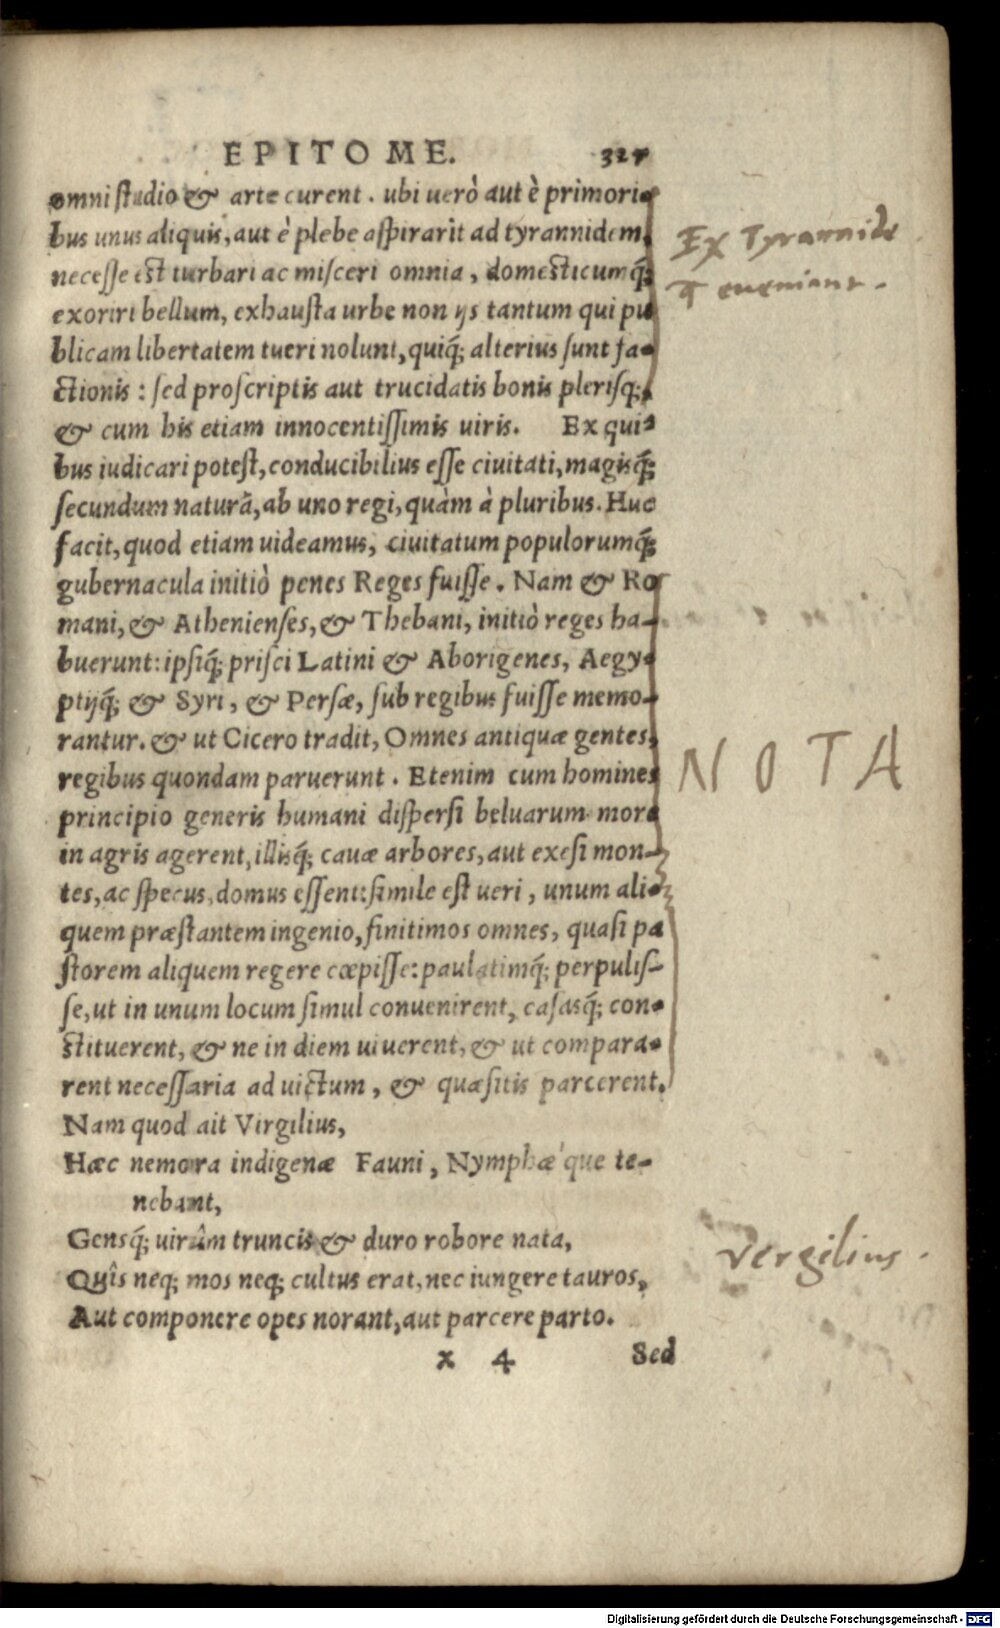 EPITOME. 327
omni studio & arte curent. ubi uerò aut è primori-
bus unus aliquis, aut è plebe aspirarit ad tyrannidem,
necesse est turbari ac misceri omnia, domesticumq́;
exoriri bellum, exhausta urbe non ijs tantum qui pu
blicam libertatem tueri nolunt, quiq́; alterius sunt fa-
ctionis: sed proscriptis aut trucidatis bonis plerisq;,
& cum his etiam innocentissimis uiris. Ex qui-
bus iudicari potest, conducibilius esse ciuitati, magisq́;
secundum naturã, ab uno regi, quàm à pluribus. Huc
facit, quod etiam uideamus, ciuitatum populorumq́;
gubernacula initiò penes Reges fuisse. Nam & Ro
mani, & Athenienses, & Thebani, initiò reges ha-
buerunt: ipsiq́; prisci Latini & Aborigenes, Aegy-
ptijq́; & Syri, & Persæ, sub regibus fuisse memo-
rantur. & ut Cicero tradit, Omnes antiquæ gentes,
regibus quondam paruerunt. Etenim cum homines
principio generis humani dispersi beluarum more
in agris agerent, illisq́; cauæ arbores, aut exesi mon-
tes, ac specus, domus essent: simile est ueri, unum ali-
quem præstantem ingenio, finitimos omnes, quasi pa
storem aliquem regere cœpisse: paulatimq́; perpulis-
se, ut in unum locum simul conuenirent, casasq́; con-
stituerent, & ne in diem uiuerent, & ut compara-
rent necessaria ad uictum, & quæsitis parcerent.
Nam quod ait Virgilius,
Hæc nemora indigenæ Fauni, Nymphæ que te-
nebant,
Gensq́; uirûm truncis & duro robore nata,
Quîs neq; mos neq; cultus erat, nec iungere tauros,
Aut componere opes norant, aut parcere parto.
x 4 Sed
Ex Tyrannide
eueniant.
NOTA
Vergilius.
Digitalisierung gefördert durch die Deutsche Forschungsgemeinschaft - DFG